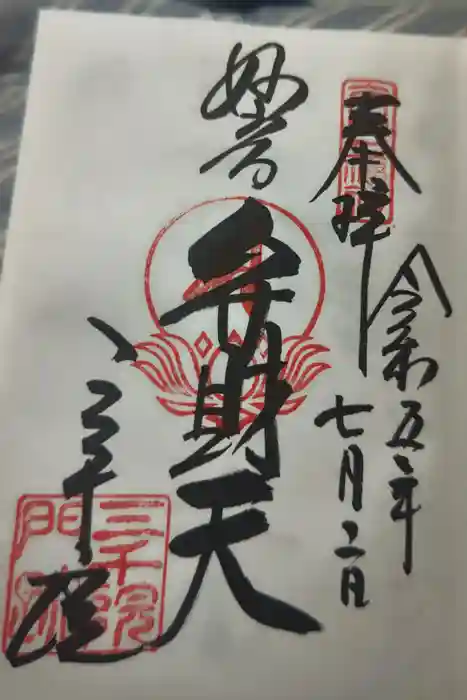 奉拝
令和五年
七月二日
妙音
弁財天
三千院
三千院
門跡